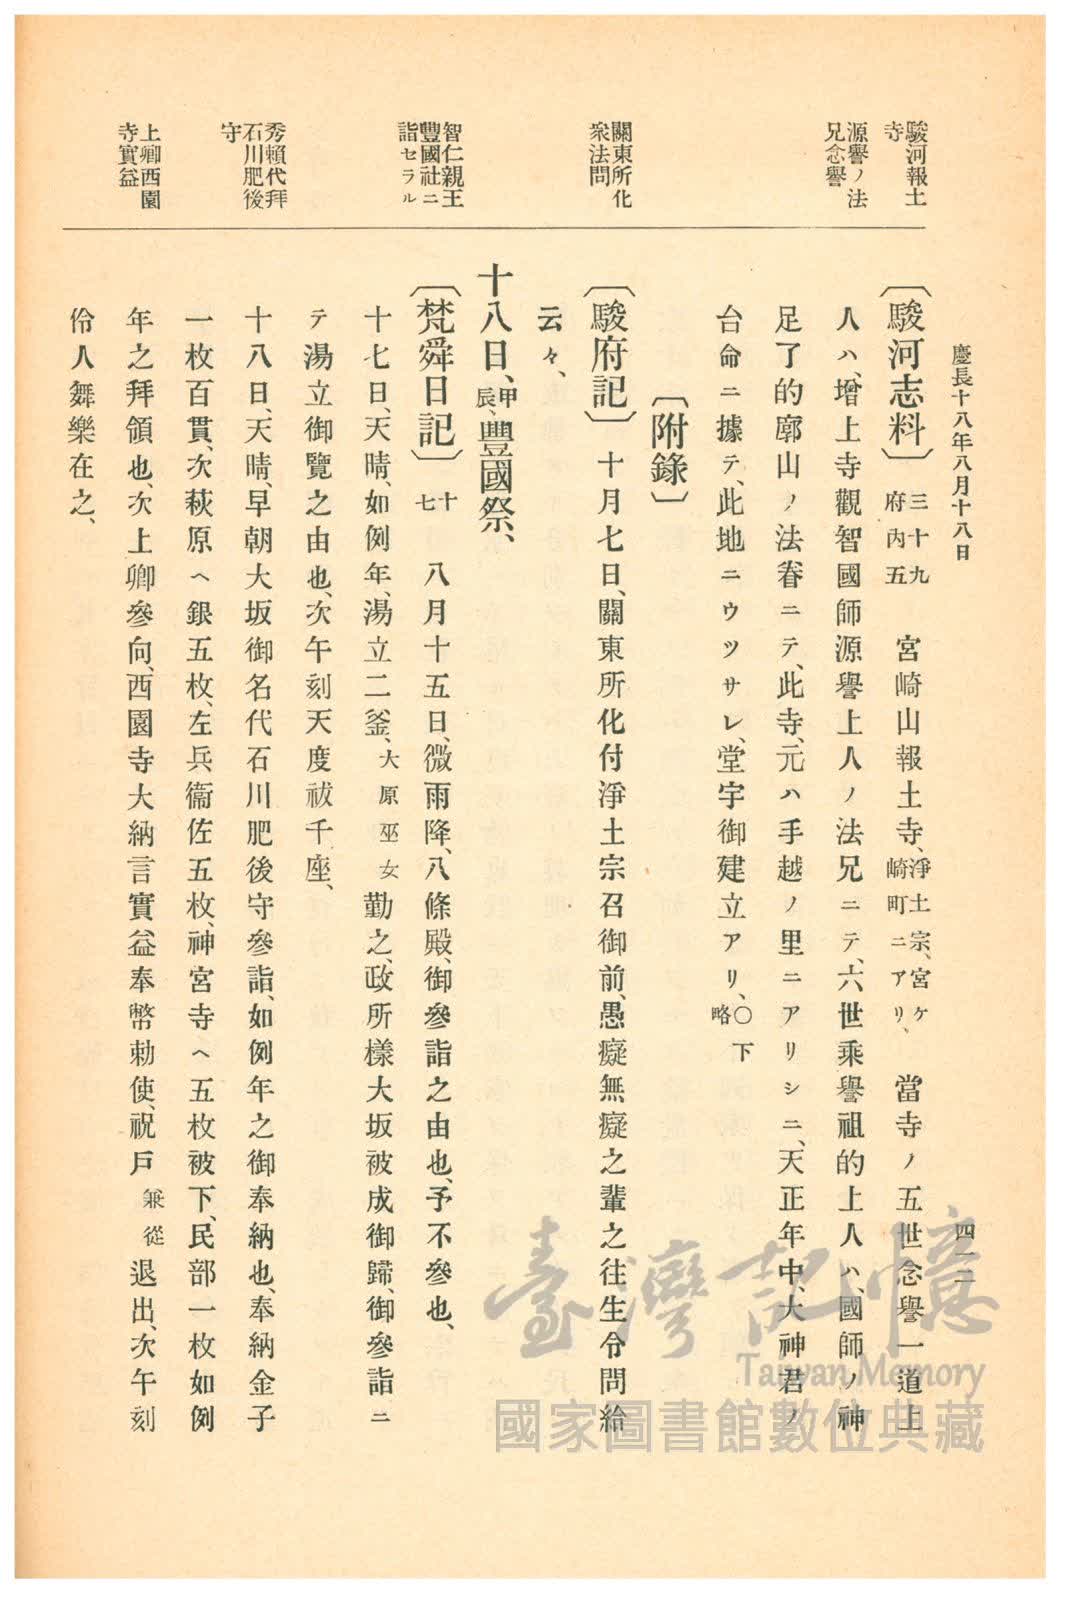 慶長十八年八月十八日
四一二
駿河報土
寺
源譽ノ法
兄念譽
關東所化
衆法問
智仁親王
豐國社ニ
詣セラル
秀賴代拜
石川肥後
守
上卿西園
寺實益
〔駿河志料〕三十九府内五 宮崎山報土寺、淨土宗、宮ケ崎町ニアリ、 當寺ノ五世念譽一道上
人ハ、增上寺觀智國師源譽上人ノ法兄ニテ、六世乘譽祖的上人ハ、國師ノ神
足了的廓山ノ法眷ニテ、此寺、元ハ手越ノ里ニアリシニ、天正年中、大神君ノ
台命ニ據テ、此地ニウツサレ、堂宇御建立アリ、〇下略
〔附錄〕
〔駿府記〕十月七日、關東所化付淨土宗召御前、愚癡無癡之輩之往生令問給
云々、
十八日、甲辰、豐國祭、
〔梵舜日記〕十七 八月十五日、微雨降、八條殿、御參詣之由也、予不參也、
十七日、天晴、如例年、湯立二釜、大原巫女勤之、政所樣大坂被成御歸、御參詣ニ
テ湯立御覽之由也、次午刻天度祓千座、
十八日、天晴、早朝大坂御名代石川肥後守參詣、如例年之御奉納也、奉納金子
一枚百貫、次萩原ヘ銀五枚、左兵衞佐五枚、神宮寺ヘ五枚被下、民部一枚如例
年之拜領也、次上卿參向、西園寺大納言實益奉幣勅使、祝戸兼從退出、次午刻
伶人舞樂在之、
臺灣記憶
Taiwan Memory
國家圖書館數位典藏